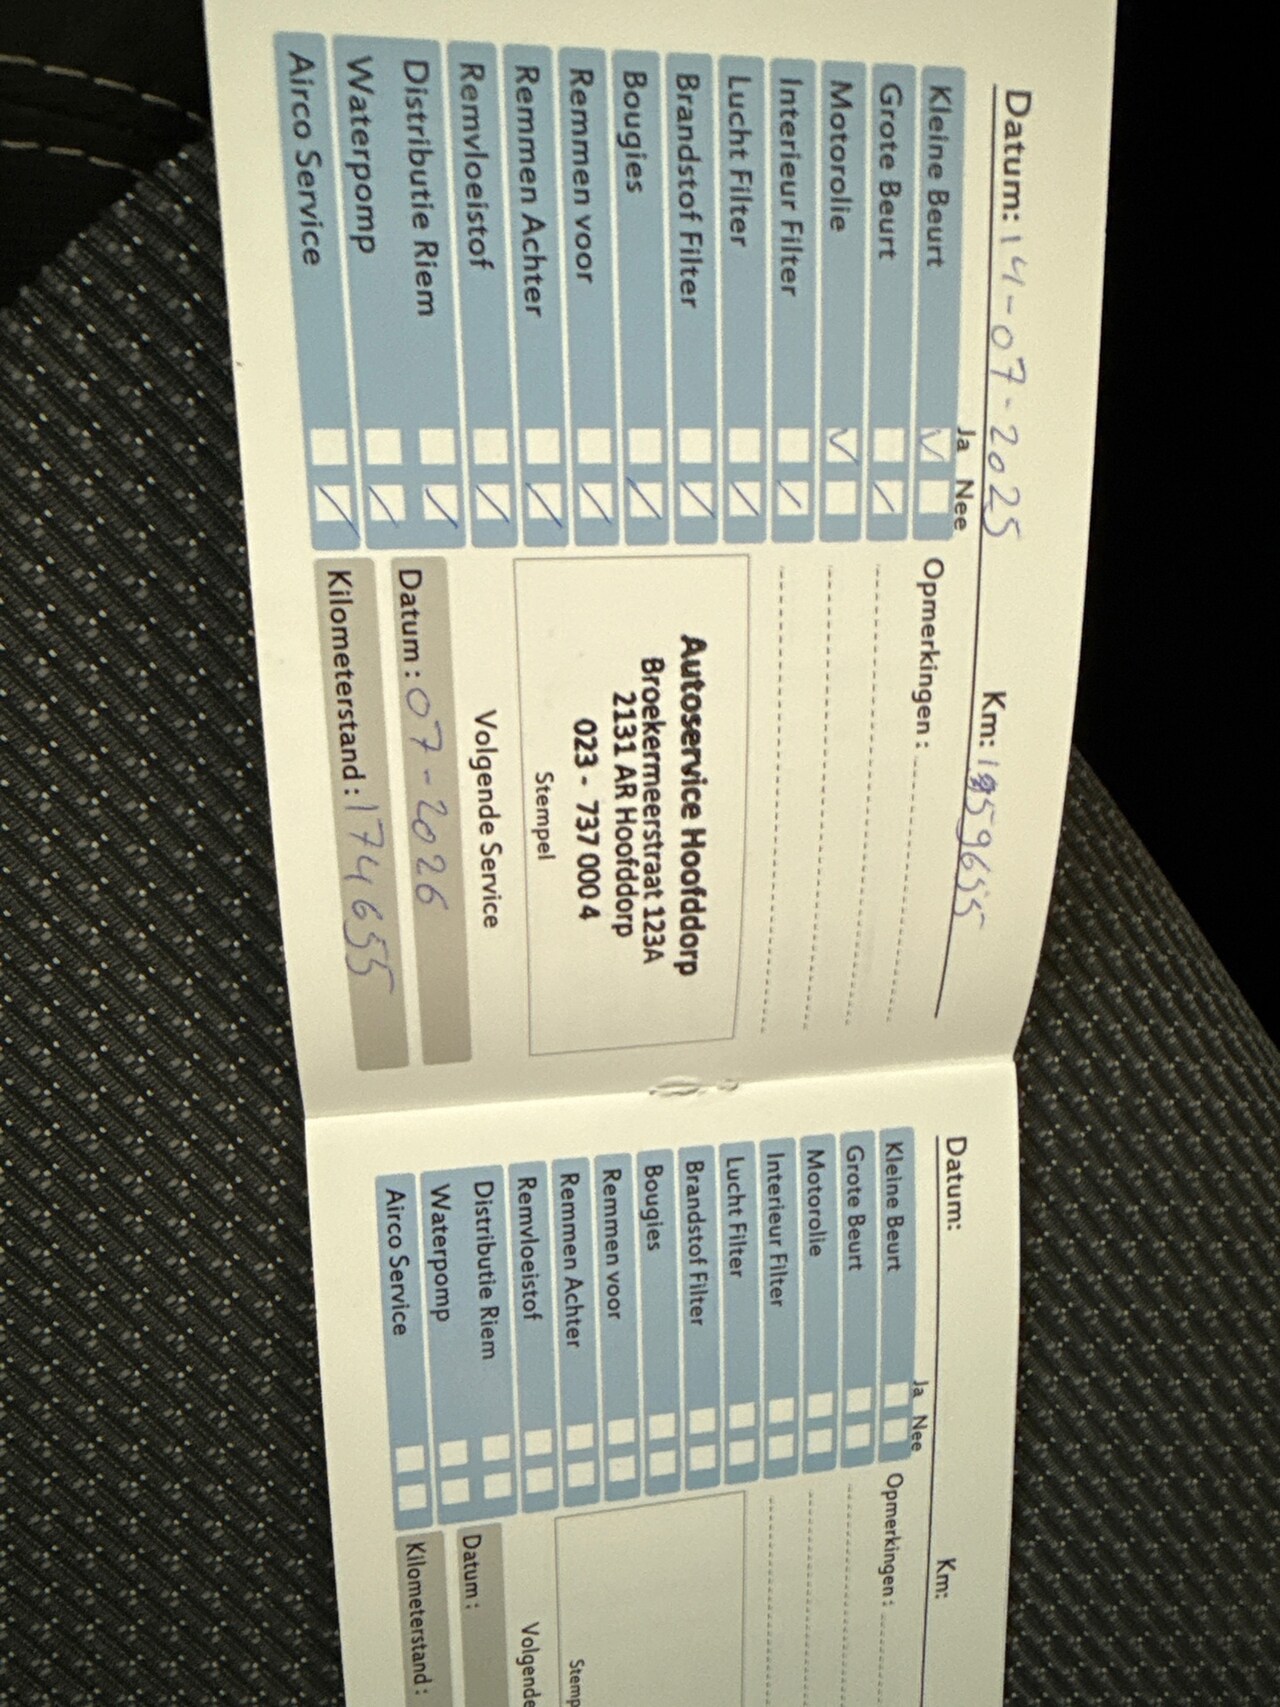 Datum: 14-07-2025 Km: 159655
Ja Nee
Kleine Beurt
Grote Beurt
Motorolie
Interieur Filter
Lucht Filter
Brandstof Filter
Bougies
Remmen voor
Remmen Achter
Remvloeistof
Distributie Riem
Waterpomp
Airco Service
Opmerkingen :
Autoservice Hoofddorp
Broekermeerstraat 123A
2131 AR Hoofddorp
023 - 737 000 4
Stempel
Volgende Service
Datum : 07-2026
Kilometerstand : 174655
Datum: Km:
Ja Nee
Kleine Beurt
Grote Beurt
Motorolie
Interieur Filter
Lucht Filter
Brandstof Filter
Bougies
Remmen voor
Remmen Achter
Remvloeistof
Distributie Riem
Waterpomp
Airco Service
Opmerkingen :
Stemp
Volgende
Datum :
Kilometerstand :